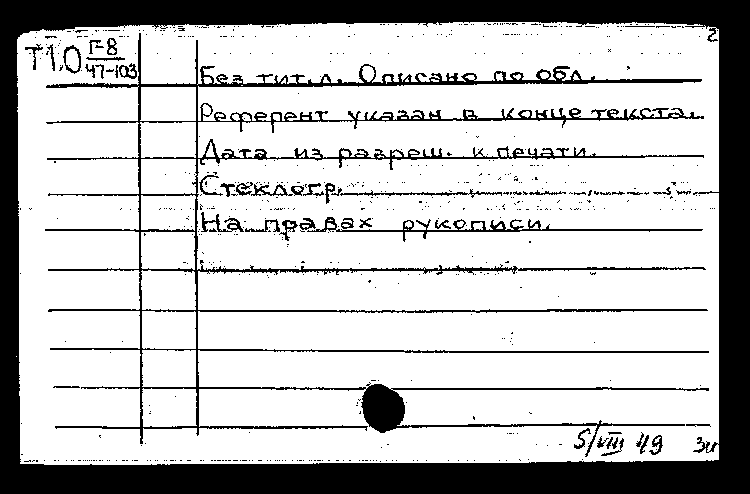 2
Т1,0 Г-8
47-103
Без тит. л. Описано по обл.
Референт указан в конце текста.
Дата из разреш. к печати.
Стеклогр.
На правах рукописи.
5/VIII 49 Зи